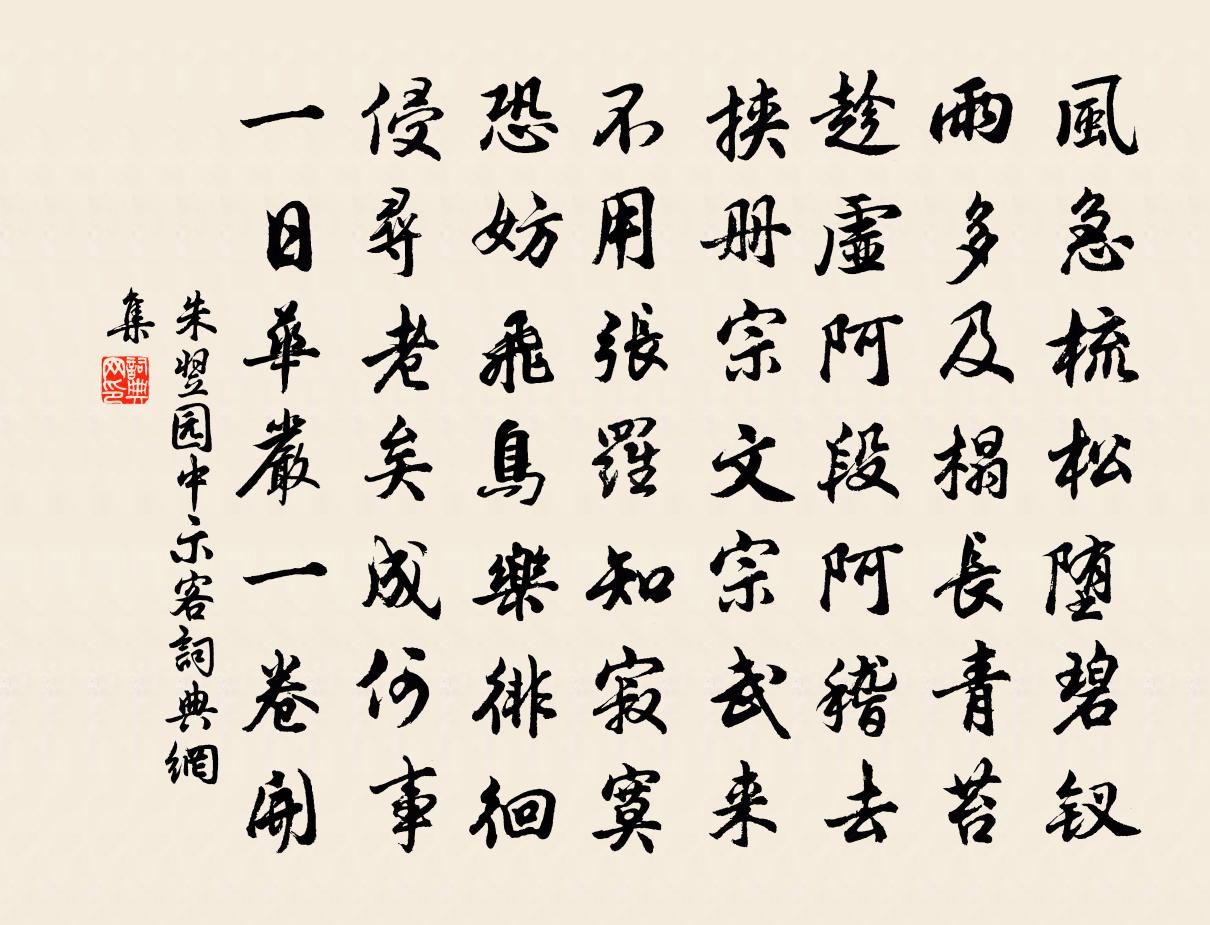 風急梳松墮碧釵
雨多及榻長青苔
趁虛阿段阿稽去
挾冊宗文宗武来
不用張羅知寂寞
恐妨飛鳥樂徘徊
侵尋老矣成何事
一日華嚴一卷開
朱翌园中示客詞典網
集
詞典网印